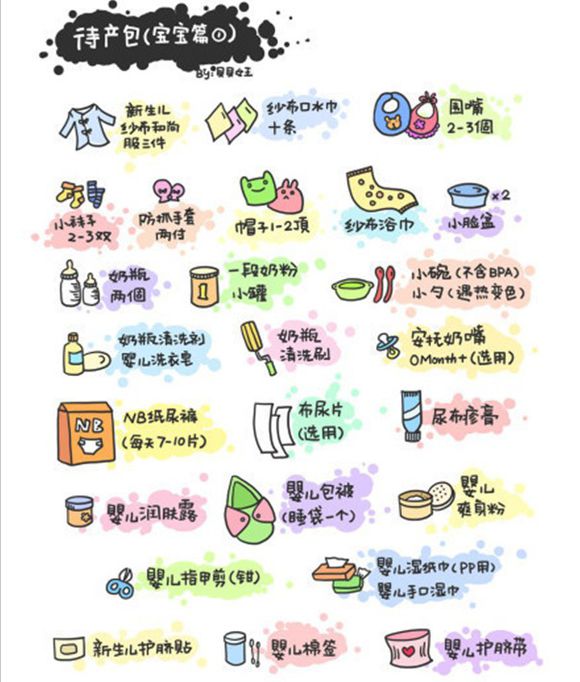 待产包(宝宝篇①)
By:贝贝女王
新生儿
纱布和尚
服三件
纱布口水巾
十条
围嘴
2-3個
小袜子
2-3双
防抓手套
两付
帽子1-2頂
纱布浴巾
×2
小脸盆
奶瓶
两個
1
一段奶粉
小罐
小碗(不含BPA)
小勺(遇热变色)
奶瓶清洗剂
嬰儿洗衣皂
奶瓶
清洗刷
安抚奶嘴
0Month+(选用)
NB
NB纸尿裤
(每天7-10片)
布尿片
(选用)
尿布疹膏
嬰儿润肤露
嬰儿包被
(睡袋一个)
嬰儿
爽身粉
嬰儿指甲剪(钳)
嬰儿湿纸巾(PP用)
嬰儿手口湿巾
新生儿护脐贴
嬰儿棉签
嬰儿护脐带